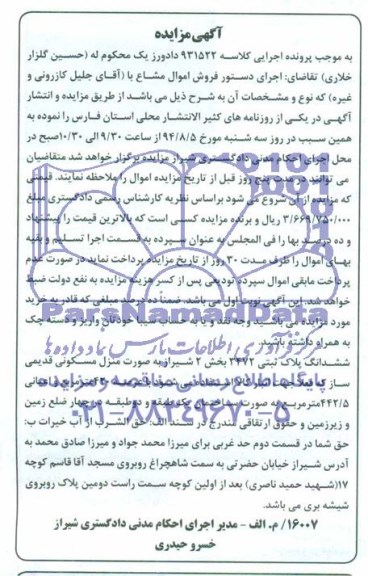 آگهی مزایده
به موجب پرونده اجرایی کلاسه ۹۳۱۵۲۲ دادورز یک محکوم له (حسین گلزار
خلاری) تقاضای: اجرای دستور فروش اموال مشاع با (آقای جلیل کازرونی و
غیره) که نوع و مشخصات آن به شرح ذیل می باشد از طریق مزایده و انتشار
آگهی در یکی از روزنامه های کثیر الانتشار محلی استان فارس را نموده به
همین سبب در روز سه شنبه مورخ ۹۴/۸/۵ از ساعت ۹/۳۰ الی ۱۰/۳۰صبح در
محل اجرای احکام مدنی دادگستری شیراز مزایده برگزار خواهد شد متقاضیان
می توانند در مدت پنج روز قبل از تاریخ مزایده اموال را ملاحظه نمایند. قیمتی
که مزایده از آن شروع می شود براساس نظریه کارشناس رسمی دادگستری مبلغ
۳/۶۶۹/۷۵۰/۰۰۰ ریال و برنده مزایده کسی است که بالاترین قیمت را پیشنهاد
و ده درصد بها را فی المجلس به عنوان سپرده به قسمت اجرا تسلیم و بقیه
بهای اموال را ظرف مدت ۳۰ روز از تاریخ مزایده پرداخت نماید در صورت عدم
پرداخت مابقی اموال سپرده تودیعی پس از کسر هزینه مزایده به نفع دولت ضبط
خواهد شد. این آگهی نوبت اول می باشد. ضمناً ده درصد مبلغی که قادر به خرید
مورد مزایده می باشید وجه نقد و یا به حساب سپرده خودتان واریز و دسته چک
به همراه داشته باشید.
ششدانگ پلاک ثبتی ۳۴۷۲ بخش ۲ شیراز به صورت منزل مسکونی قدیمی
ساز
۴۴۲/۵مترمربع به صورت ساختمان یک طبقه و دو طبقه در چهار ضلع زمین
و زیرزمین و حقوق ارتفاقی مندرج در سند الف: حق الشرب از آب خیرات ب:
حق شما در قسمت دوم حد غربی برای میرزا محمد جواد و میرزا صادق محمد به
آدرس شیراز خیابان حضرتی به سمت شاهچراغ روبروی مسجد آقا قاسم کوچه
۱۷(شهید حمید ناصری) بعد از اولین کوچه سمت راست دومین پلاک روبروی
شیشه بری می باشد.
۱۶۰۰۷/ م. الف - مدیر اجرای احکام مدنی دادگستری شیراز
خسرو حیدری
ParsNamadData
فرآوری اطلاعات پارس نماد داده ها
پایگاه اطلاع رسانی مناقصه و مزایده
۰۲۱-۸۸۳۴۹۶۷۰-۵